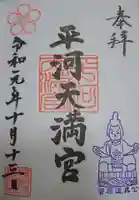 奉拝
平河天満宮
令和元年十月十三日